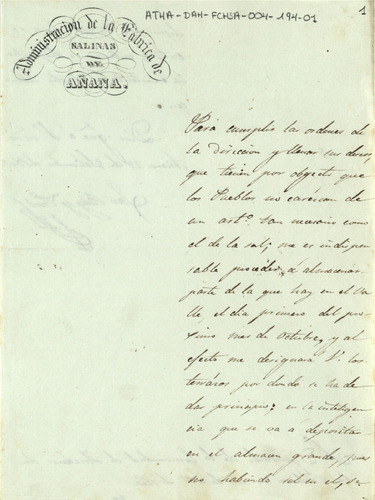 ATHA-DAH-FCHSA-004-194-01
1
Administracion de la Fabrica de
SALINAS
DE
AÑANA.
Para cumplir las ordenes de
la Direccion y llenar sus deseos,
que tienen por objeto que
los Pueblos no carescan de
un arto. tan necesario como
el de la sal; me es indispen-
sable proceder á almacenar
parte de la que hay en el Va-
lle el dia primero del pro-
simo mes de Octubre, y al
efecto me designará V. los
terrasos por donde se ha de
dar principio: en la inteligen-
cia que se va a depositar
en el almacen grande, pues
no habiendo sal en el